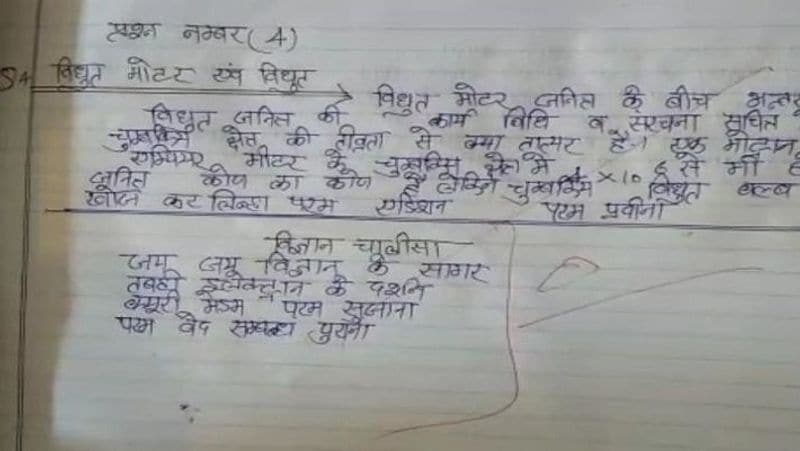 प्रश्न नम्बर (4)
विद्युत मोटर एवं विद्युत
विद्युत मोटर जनित के बीच अन्तर
विद्युत जनित की कार्य विधि व संरचना सूचित
चुम्बकिय क्षेत्र की तीव्रता से क्या तात्पर है। एक
एम्पियर मीटर के चुम्बकिय क्षेत्र में × 10 से मी
जनित कोण का कोण है लेकिन चुम्बकिय विद्युत बल्ब
खोज कर लिन्हा परम एडिशन परम प्रवीना
विज्ञान चालीसा
जय जय विज्ञान के सागर
तबही इलेक्ट्रान के दर्शन
मैडम परम सुजाना
परम वेद सम्बन्ध पुराना